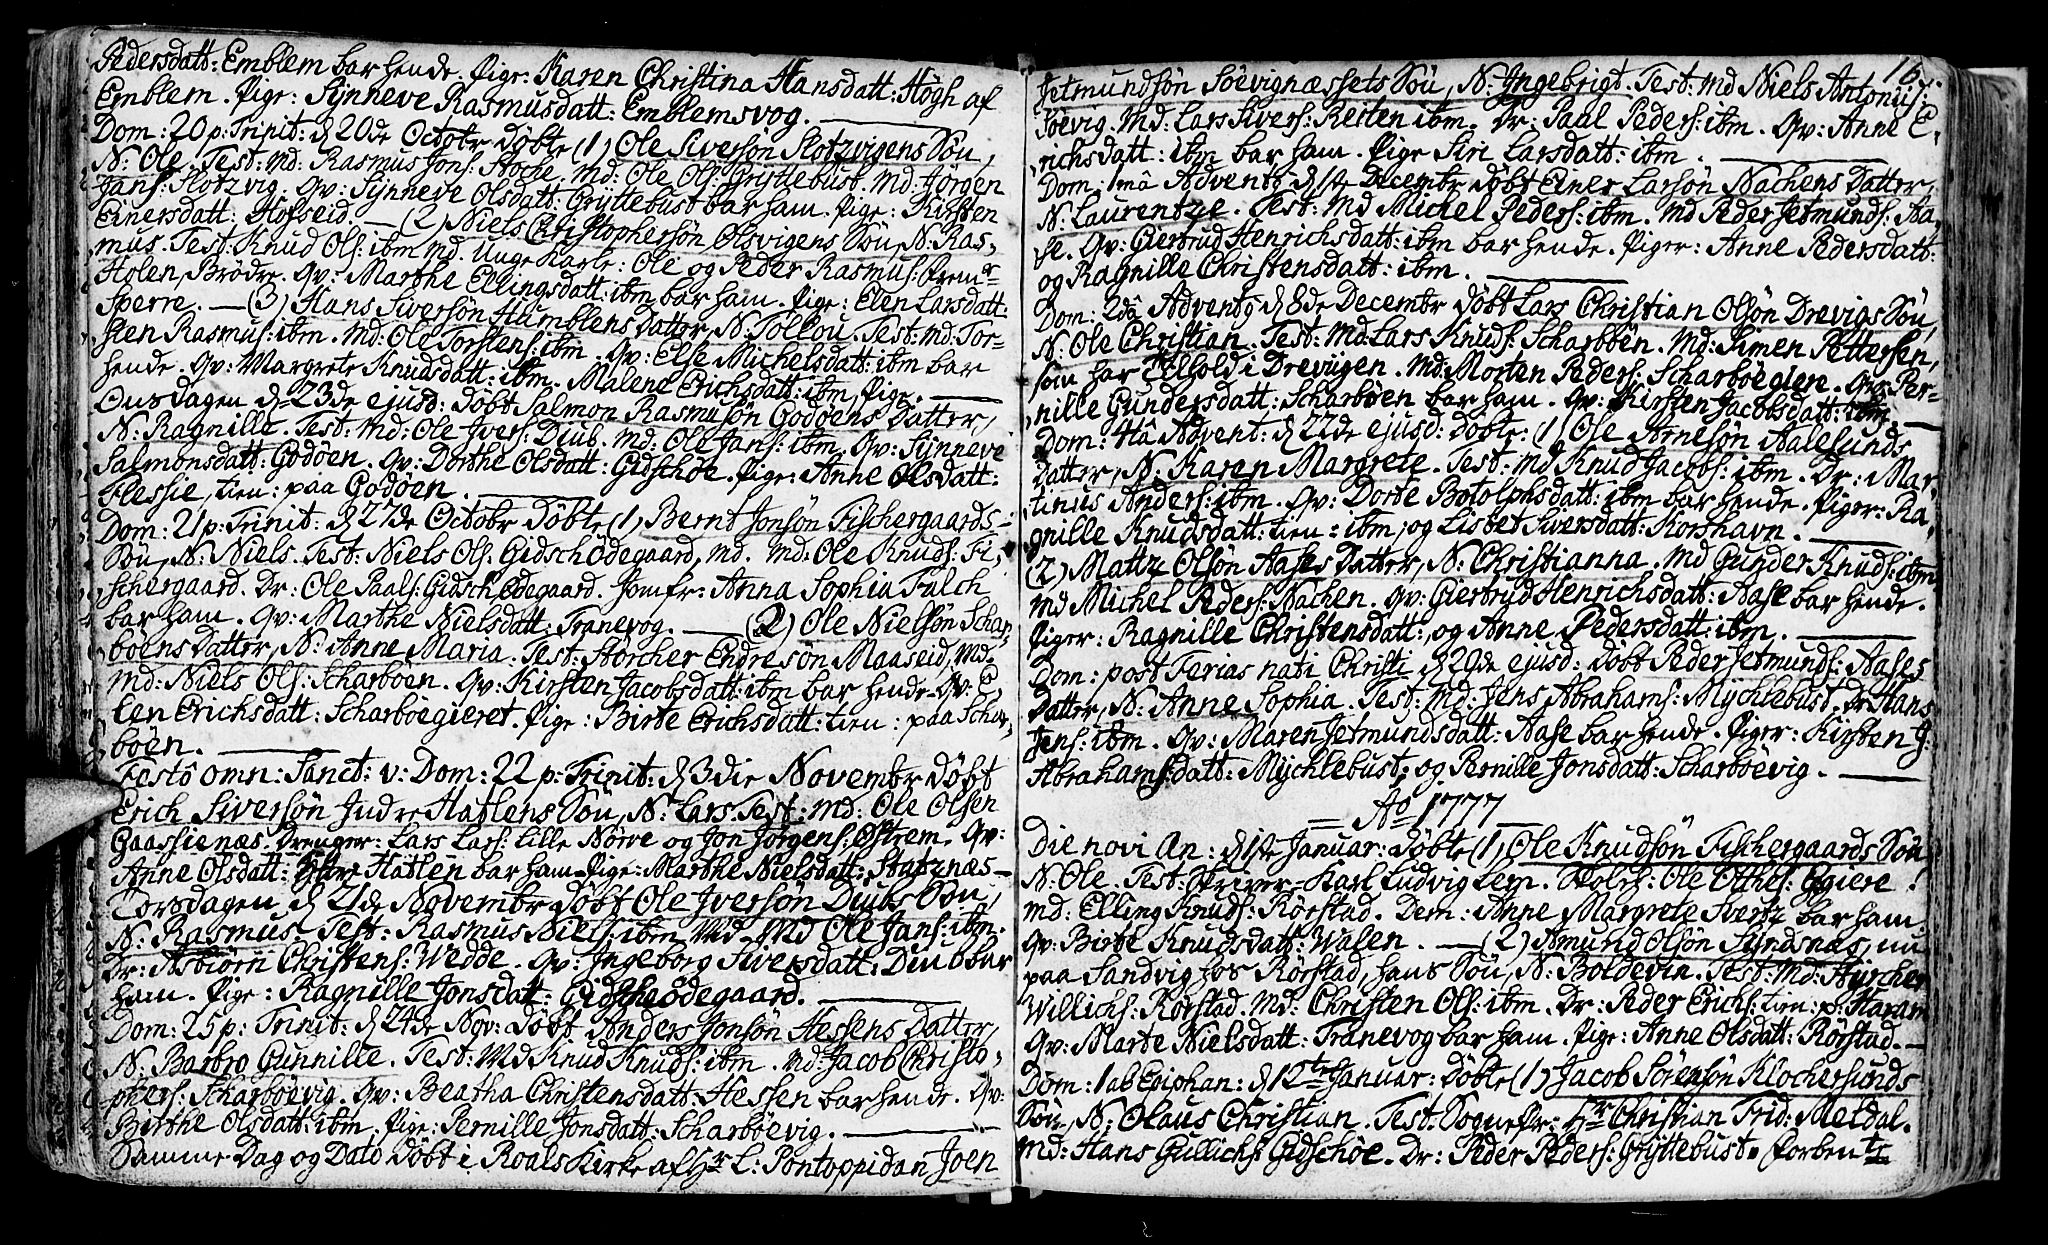 Pedersdatt: Emblem bar hende. Pige: Karen Christina Hansdatt: Høgh af
Emblem. Pige: Synneve Rasmusdatt: Emblemsvog.
Dom: 20 p: Trinit: d 20de Octobr døbte (1) Ole Siversøn Slotzvigens Søn,
N: Ole. Test: Md: Rasmus Jons: Hoche. Md: Ole Ols: Gryttebust. Md: Jørgen
Jans: Slotzvig. Qv: Synneve Olsdatt: Gryttebust bar ham. Pige: Kirsten
Einersdatt: Hofseid. — (2) Niels Christophersøn Olsvigens Søn, N: Ras-
mus. Test: Knud Ols: ibm Md. Unge Karle: Ole og Peder Rasmus:
Holen, Brødre. Qv: Marthe Ellingsdatt: ibm bar ham. Pige: Elen Larsdatt:
Sperre. — (3) Hans Siversøn Humblens Datter, N: Tollou. Test: Md: Tor-
sten Rasmus: ibm. Md: Ole Torstens: ibm. Qv: Else Michelsdatt: ibm bar
hende. Qv: Margrete Knudsdatt: ibm. Malene Erichsdatt: ibm Pige.
Onsdagen d 23de ejusd: døbt Salmon Rasmusøn Godøens Datter,
N: Ragnille. Test: Md: Ole Ivers: Diub. Md: Ole Jans: ibm. Qv: Synneve
Salmonsdatt: Godøen. Qv: Dorthe Olsdatt: Gidschøe. Pige: Anne Olsdatt:
Flessie, tien: paa Godøen.
Dom: 21 p: Trinit: d 27de Octobr døbte (1) Bernt Jonsøn Fischergaards-
Søn, N: Niels. Test: Niels Ols: Gidschødegaard, Md. Md: Ole Knuds: Fi-
schergaard. Dr: Ole Paals: Gidschødegaard. Jomfr: Anna Sophia Falch
bar ham. Qv: Marthe Nielsdatt: Tranevog. — (2) Ole Nielsøn Schar-
bøens Datter, N: Anne Maria. Test: Storcher Endresøn Maaseid, Md.
Md: Niels Ols: Scharbøen. Qv: Kirsten Jacobsdatt: ibm bar hende. Qv: E-
len Erichsdatt: Scharbøegieret. Pige: Birte Erichsdatt: tien: paa Schar-
bøen.
Festô omn: Sanct: v: Dom: 22 p: Trinit: d 3die Novembr døbt
Erich Siversøn Indre Hatlens Søn, N: Lars. Test: Md: Ole Olsen
Gaassienæs. Drenger: Lars Lars: Lille Nørve og Jon Jørgens: Østrem. Qv:
Anne Olsdatt: Yttre Hatlen bar ham. Pige: Marthe Nielsdatt: Statznæs—
Torsdagen d 21de Novembr døbt Ole Iversøn Diubs Søn,
N: Rasmus. Test: Rasmus Niels: ibm Md. Md Ole Jans: ibm.
Dr: Asbiørn Christens: Wedde. Qv: Ingeborg Siversdatt: Diub bar
ham. Pige: Ragnille Jonsdatt: Gidschødegaard.
Dom: 25 p: Trinit: d 24de Nov: døbt Anders Jonsøn Hessens Datter,
N: Barbro Gunnille. Test: Md Knud Knuds: ibm. Md: Jacob Christo-
phers: Scharbøevig. Qv: Beatha Christensdatt: Hessen bar hende. Qv:
Birthe Olsdatt: ibm. Pige: Pernille Jonsdatt: Scharbøevig.
Samme Dag og Dato døbt i Roals Kirke af Hr L: Pontoppidan Joen
16.
Jetmundsøn Søevignæssets Søn, N: Ingebrigt. Test: Md Niels Antonii:
Søevig. Md: Lars Sivers: Resten ibm. Dr: Paal Peders: ibm. Qv: Anne E-
richsdatt: ibm bar ham. Pige Siri Larsdatt: ibm.
Dom: 1mâ Adventg d 1ste Decembr døbt Einer Larsøn Nachens Datter,
N: Laurentze. Test: Md Michel Peders: ibm. Md Peder Jetmunds: Aa-
se. Qv: Giertrud Henrichsdatt: ibm bar hende. Piger: Anne Pedersdatt:
og Ragnille Christensdatt: ibm.
Dom: 2dâ Adventg d 8de Decembr døbt Lars Christian Olsøn Drevigs Søn,
N: Ole Christian. Test: Md: Lars Knuds: Scharbøen. Md: Simen Pettersen,
som har Tilhold i Drevigen. Md: Morten Peders: Scharbøegiere. Qv: Per-
nille Gundersdatt: Scharbøen bar ham. Qv: Kirsten Jacobsdatt: ibm.
Dom: 4tâ Advent: d 22de ejusd: døbte: (1) Ole Arnesøn Aalesunds
Datter, N: Karen Margrete. Test: Md Knud Jacobs: ibm. Dr: Mar-
tinus Anders: ibm. Qv: Dorte Botolphsdatt: ibm bar hende. Piger: Ra-
gnille Knudsdatt: tien: ibm, og Lisbet Siversdatt: Korshavn.
(2) Mattz Olsøn Aases Datter, N: Christianna. Md Gunder Knuds: ibm
Md Michel Peders: Nachen. Qv: Giertrud Henrichsdatt: Aase bar hende.
Piger: Ragnille Christensdatt: og Anne Pedersdatt: ibm.
Dom: post Ferias nati Christi d 29de ejusd: døbt Peder Jetmunds: Aases
Datter, N: Anne Sophia. Test: Md: Jens Abrahams: Mychlebust. Dr Hans
Jens: ibm. Qv: Maren Jetmundsdatt: Aase bar hende. Piger: Kirsten G:
Abrahams:datt: Mychlebust, og Pernille Jonsdatt: Scharbøevig.
Ao 1777
Die novi An: d 1ste Januar: døbte (1) Ole Knudsøn Fischergaards Søn
N: Ole. Test: Skriver Karl Ludvig Lem. Skoleh: Ole Othes: Giere!
Md: Elling Knuds: Rørstad. Dem: Anne Margrete Svertz bar ham.
Qv: Birte Knudsdatt: Walen. — (2) Amund Olsøn Syndsnæs, nu
paa Sandvig hos Rørstad, hans Søn, N: Boldevin. Test: Md: Hircher
Willichs: Rørstad. Md: Christen Ols: ibm. Dr: Peder Erichs: tien: p: Haram
Qv: Marte Nielsdatt: Tranevog bar ham. Pige: Anne Olsdatt: Rørstad.—
Dom: 1 ab Epiphan: d 12te Januar: døbte (1) Jacob Sørensøn Klochersunds
Søn, N: Olaus Christian. Test: Sognepr: Hr Christian Frid: Meldal.
Md: Hans Gullichs: Gidschøe. Dr: Peder Peders: Gryttebust. Forbente